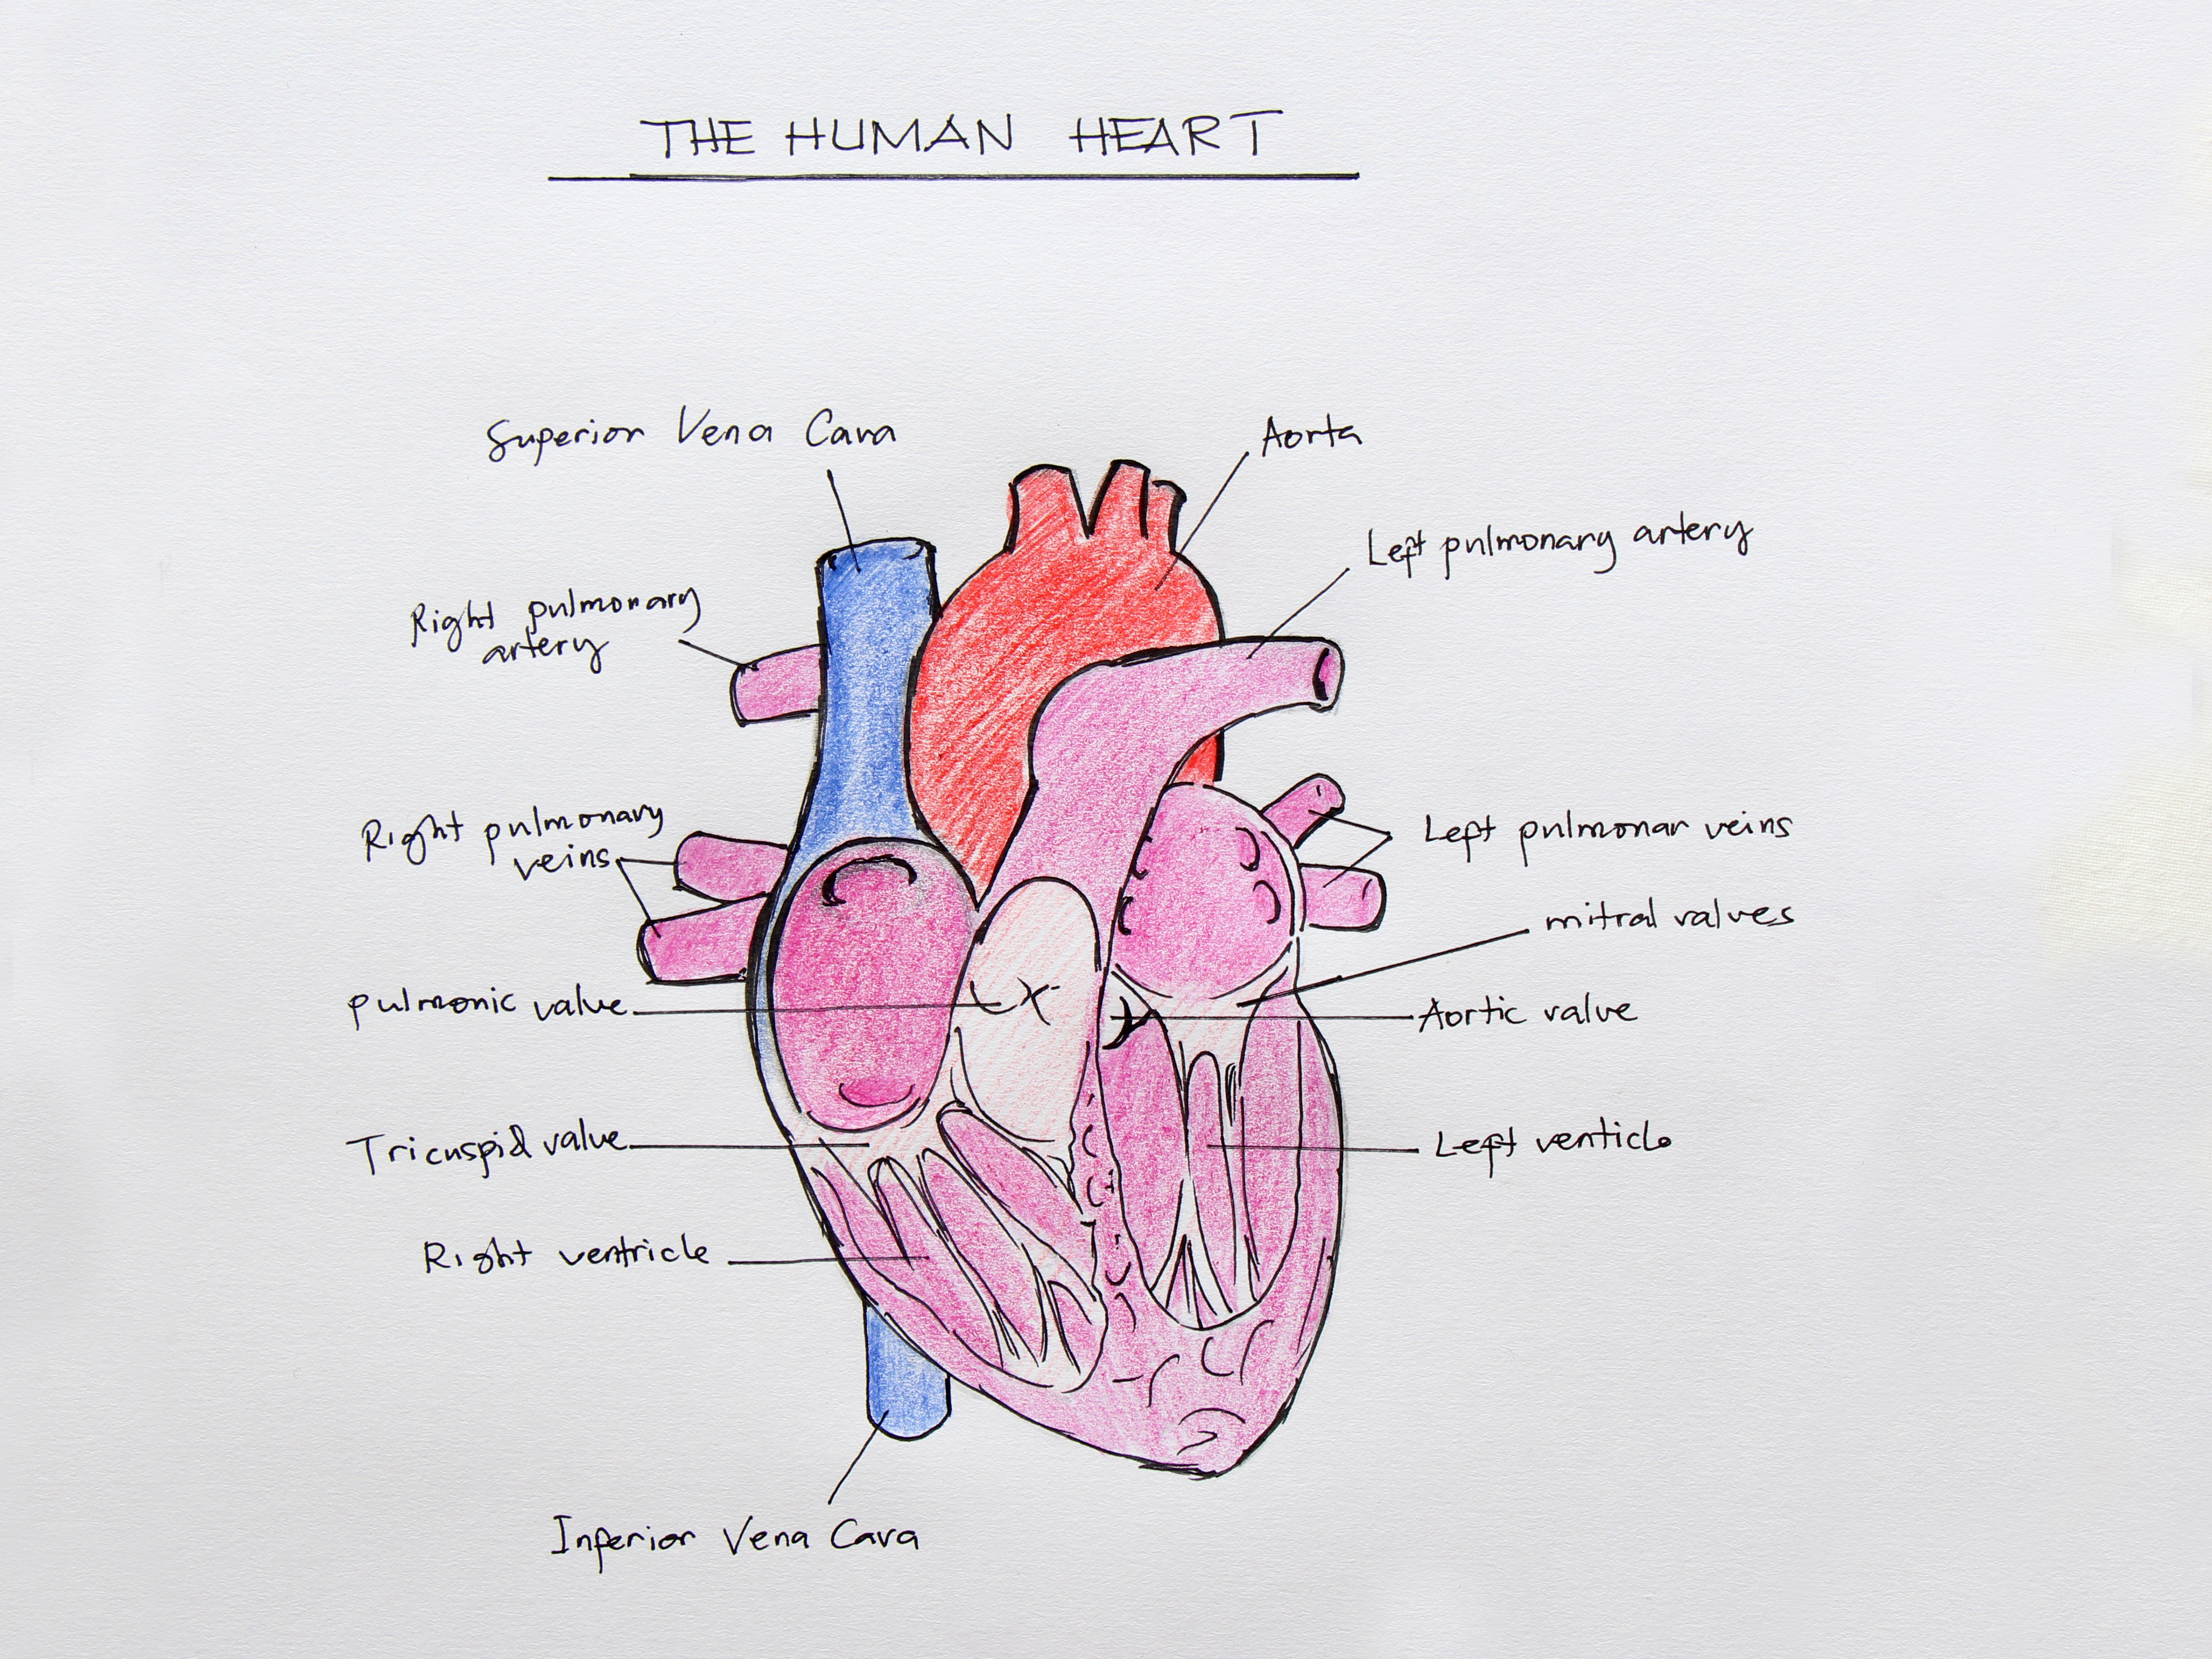 THE HUMAN HEART
Superior Vena Cava
Aorta
Left pulmonary artery
Right pulmonary
artery
Right pulmonary
veins
Left pulmonar veins
mitral valves
pulmonic valve
Aortic valve
Tricuspid valve
Left venticle
Right ventricle
Inferior Vena Cava